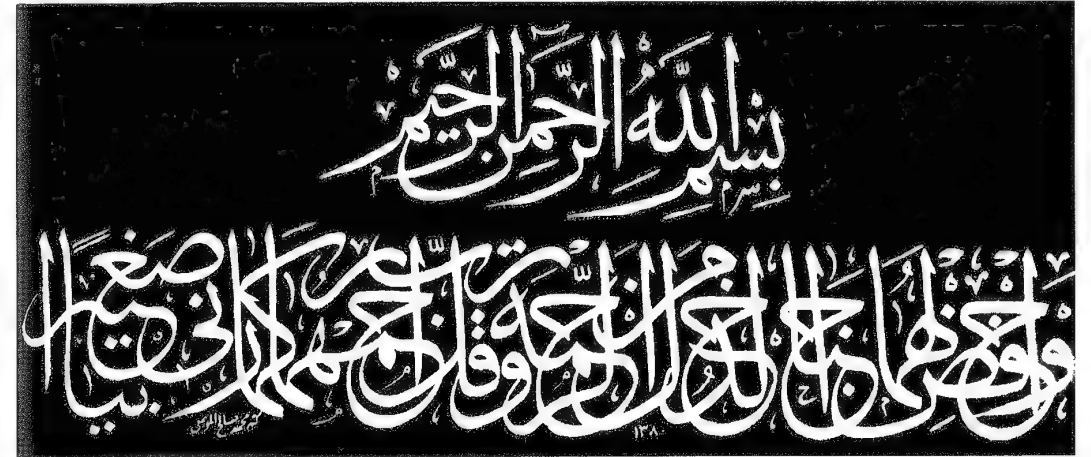 بِسْمِ اللَّهِ الرَّحْمَٰنِ الرَّحِيمِ
وَاخْفِضْ لَهُمَا جَنَاحَ الذُّلِّ مِنَ الرَّحْمَةِ وَقُلْ رَبِّ ارْحَمْهُمَا كَمَا رَبَّيَانِي صَغِيرًا
١٣٨٠